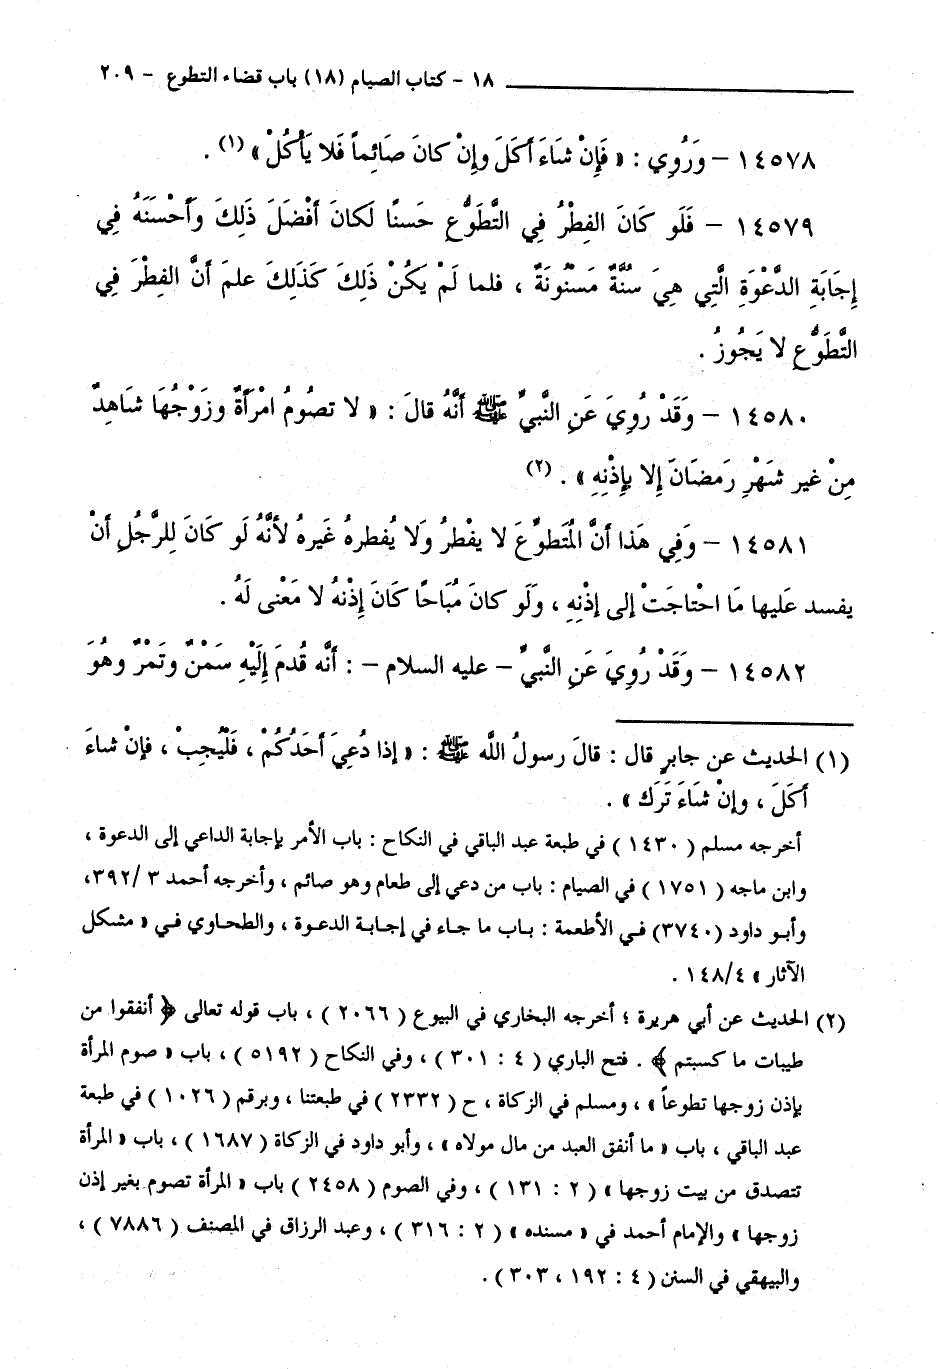 ١٨ - كتاب الصيام (١٨) باب قضاء التطوع - ٢٠٩
١٤٥٧٨ - وَرُوِي : « فَإِنْ شَاءَ أَكَلَ وإِنْ كانَ صَائِماً فَلا يَأْكُلْ » (١) .
١٤٥٧٩ - فَلَو كَانَ الفِطْرُ فِي التَّطَوُّعِ حَسنًا لَكانَ أَفْضَلَ ذَلِكَ وَأَحْسَنَهُ فِي
إِجَابَةِ الدَّعْوَةِ الَّتِي هِيَ سُنَّةٌ مَسْنُونَةٌ ، فلما لَمْ يَكُنْ ذَلِكَ كَذَلِكَ علمَ أَنَّ الفِطْرَ فِي
التَّطَوُّعِ لا يَجُوزُ .
١٤٥٨٠ - وَقَدْ رُوِيَ عَنِ النَّبِيِّ ﷺ أَنَّهُ قالَ : « لا تصُومُ امْرَأَةٌ وزَوْجُهَا شاهِدٌ
مِنْ غيرِ شَهْرِ رَمَضَانَ إِلا بِإِذْنِهِ » . (٢)
١٤٥٨١ - وَفِي هَذا أَنَّ الْمُتَطَوِّعَ لا يفْطرُ وَلا يُفطرهُ غَيرهُ لأَنَّهُ لَو كَانَ لِلرَّجُلِ أَنْ
يفسد عَليها مَا احْتاجَتْ إلى إذْنِهِ ، وَلَو كانَ مُبَاحًا كَانَ إِذْنُهُ لا مَعْنى لَهُ .
١٤٥٨٢ - وَقَدْ رُوِيَ عَنِ النَّبِيِّ - عليه السلام - : أَنَّه قُدمَ إِلَيْهِ سَمْنٌ وتَمْرٌ وهُوَ
(١) الحديث عن جابرٍ قال : قالَ رسولُ اللَّه ﷺ : « إذا دُعِيَ أَحَدُكُمْ ، فَلْيُجِبْ ، فإنْ شاءَ
أَكَلَ ، وإنْ شَاءَ تَرَك » .
أخرجه مسلم ( ١٤٣٠ ) في طبعة عبد الباقي في النكاح : باب الأمر بإجابة الداعي إلى الدعوة ،
وابن ماجه ( ١٧٥١ ) في الصيام : باب من دعي إلى طعام وهو صائم ، وأخرجه أحمد ٣ /٣٩٢،
وأبو داود (٣٧٤٠) في الأطعمة : باب ما جاء في إجابة الدعوة ، والطحاوي في « مشكل
الآثار » ١٤٨/٤ .
(٢) الحديث عن أبي هريرة ؛ أخرجه البخاري في البيوع ( ٢٠٦٦ ) ، باب قوله تعالى ﴿ أنفقوا من
طيبات ما كسبتم ﴾ . فتح الباري ( ٤ : ٣٠١ ) ، وفي النكاح ( ٥١٩٢ ) ، باب « صوم المرأة
بإذن زوجها تطوعاً » ، ومسلم في الزكاة ، ح ( ٢٣٣٢ ) في طبعتنا ، وبرقم ( ١٠٢٦ ) في طبعة
عبد الباقي ، باب « ما أنفق العبد من مال مولاه » ، وأبو داود في الزكاة ( ١٦٨٧ ) ، باب « المرأة
تتصدق من بيت زوجها » ( ٢ : ١٣١ ) ، وفي الصوم ( ٢٤٥٨ ) باب « المرأة تصوم بغير إذن
زوجها » والإمام أحمد في « مسنده » ( ٢ : ٣١٦ ) ، وعبد الرزاق في المصنف ( ٧٨٨٦ ) ،
والبيهقي في السنن ( ٤ : ١٩٢ ، ٣٠٣ ) .